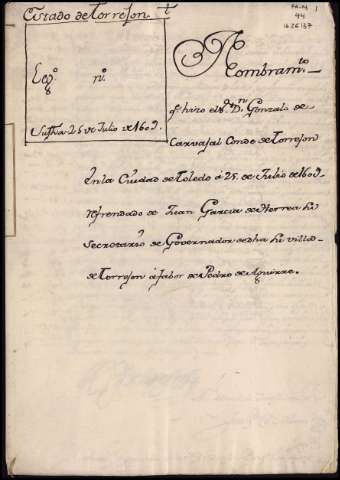 Estado de Torrejon. t
Leg.º n.º
Su fha 25 de Julio de 1609.
Nombram.to
q.e hizo el S.or D.n Gonzalo de
Carvajal Conde de Torrejon
En la Ciudad de Toledo á 25. de Julio de 1609
Refrendado de Juan Garcia de
Secretario de Governador de dha villa
de Torrejon á fabor de Pedro de Aguirre.
44